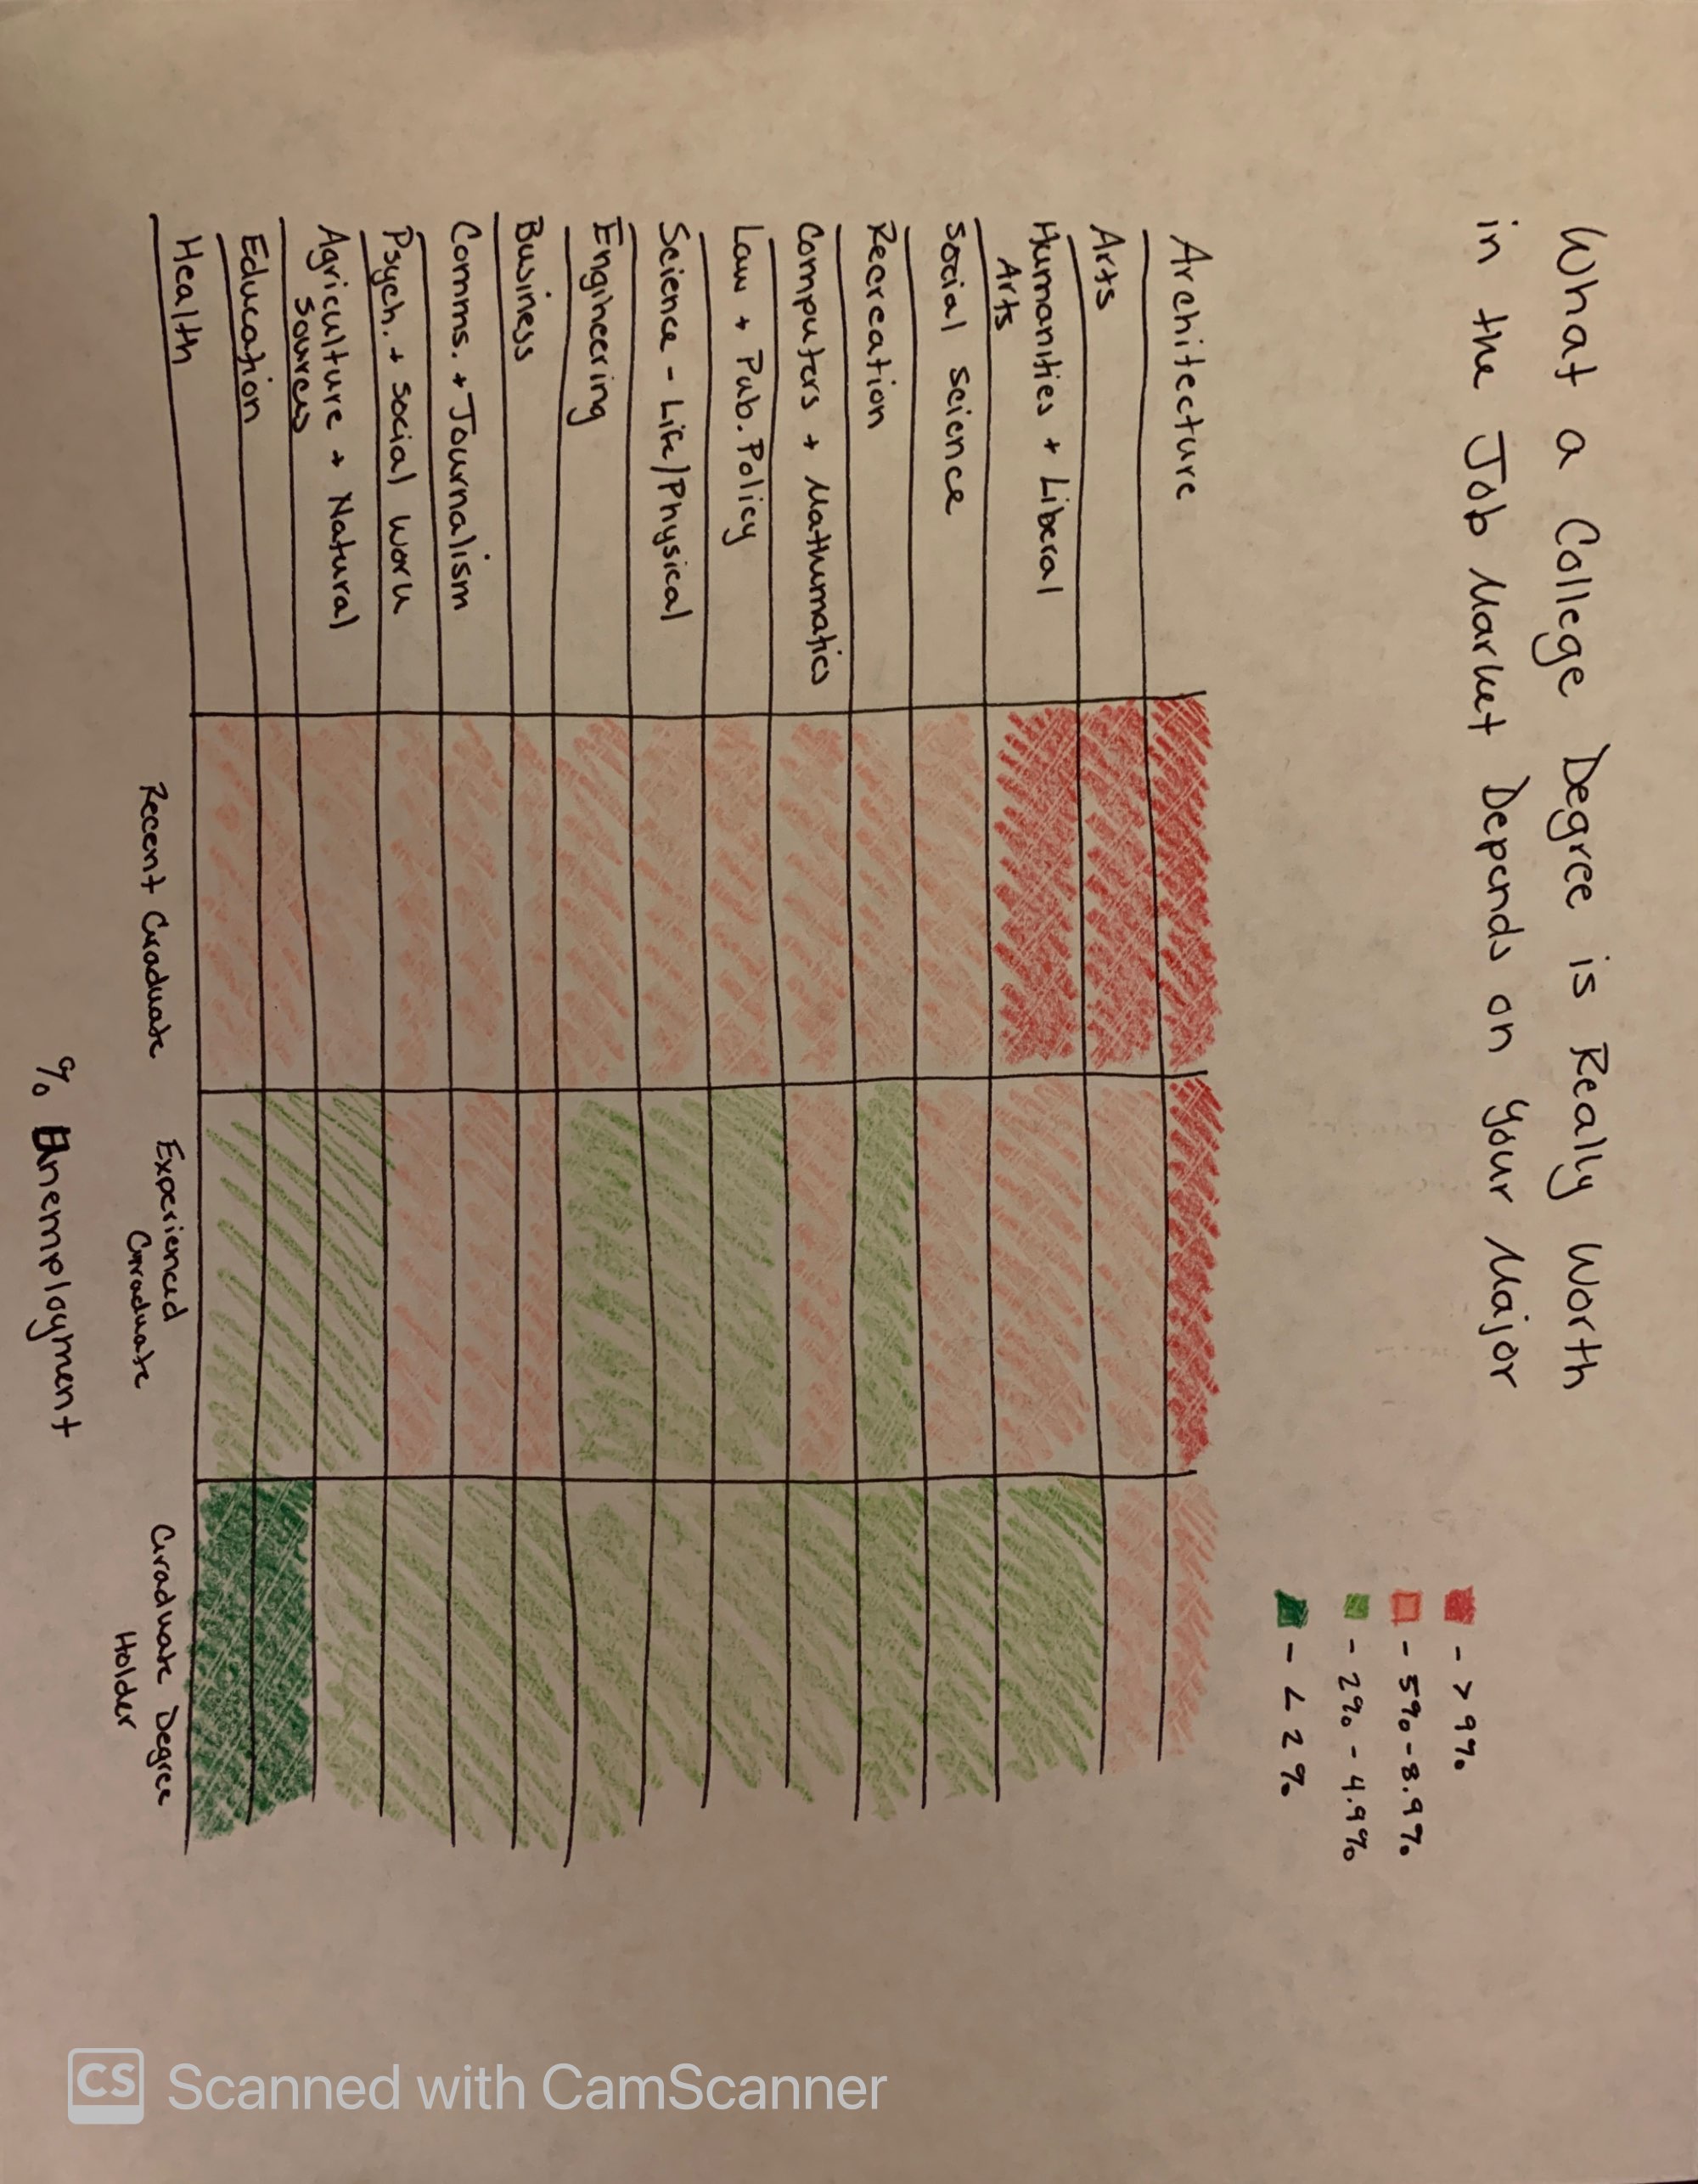 What a College Degree is Really Worth
in the Job Market Depends on Your Major
- > 9%
- 5% - 8.9%
- 2% - 4.9%
- < 2%
Architecture
Arts
Humanities + Liberal
Arts
Social Science
Recreation
Computers + Mathematics
Law + Pub. Policy
Science - Life/Physical
Engineering
Business
Comms. + Journalism
Psych. + Social Work
Agriculture + Natural
Sources
Education
Health
Recent Graduate
Experienced
Graduate
Graduate Degree
Holder
% Unemployment
CS Scanned with CamScanner